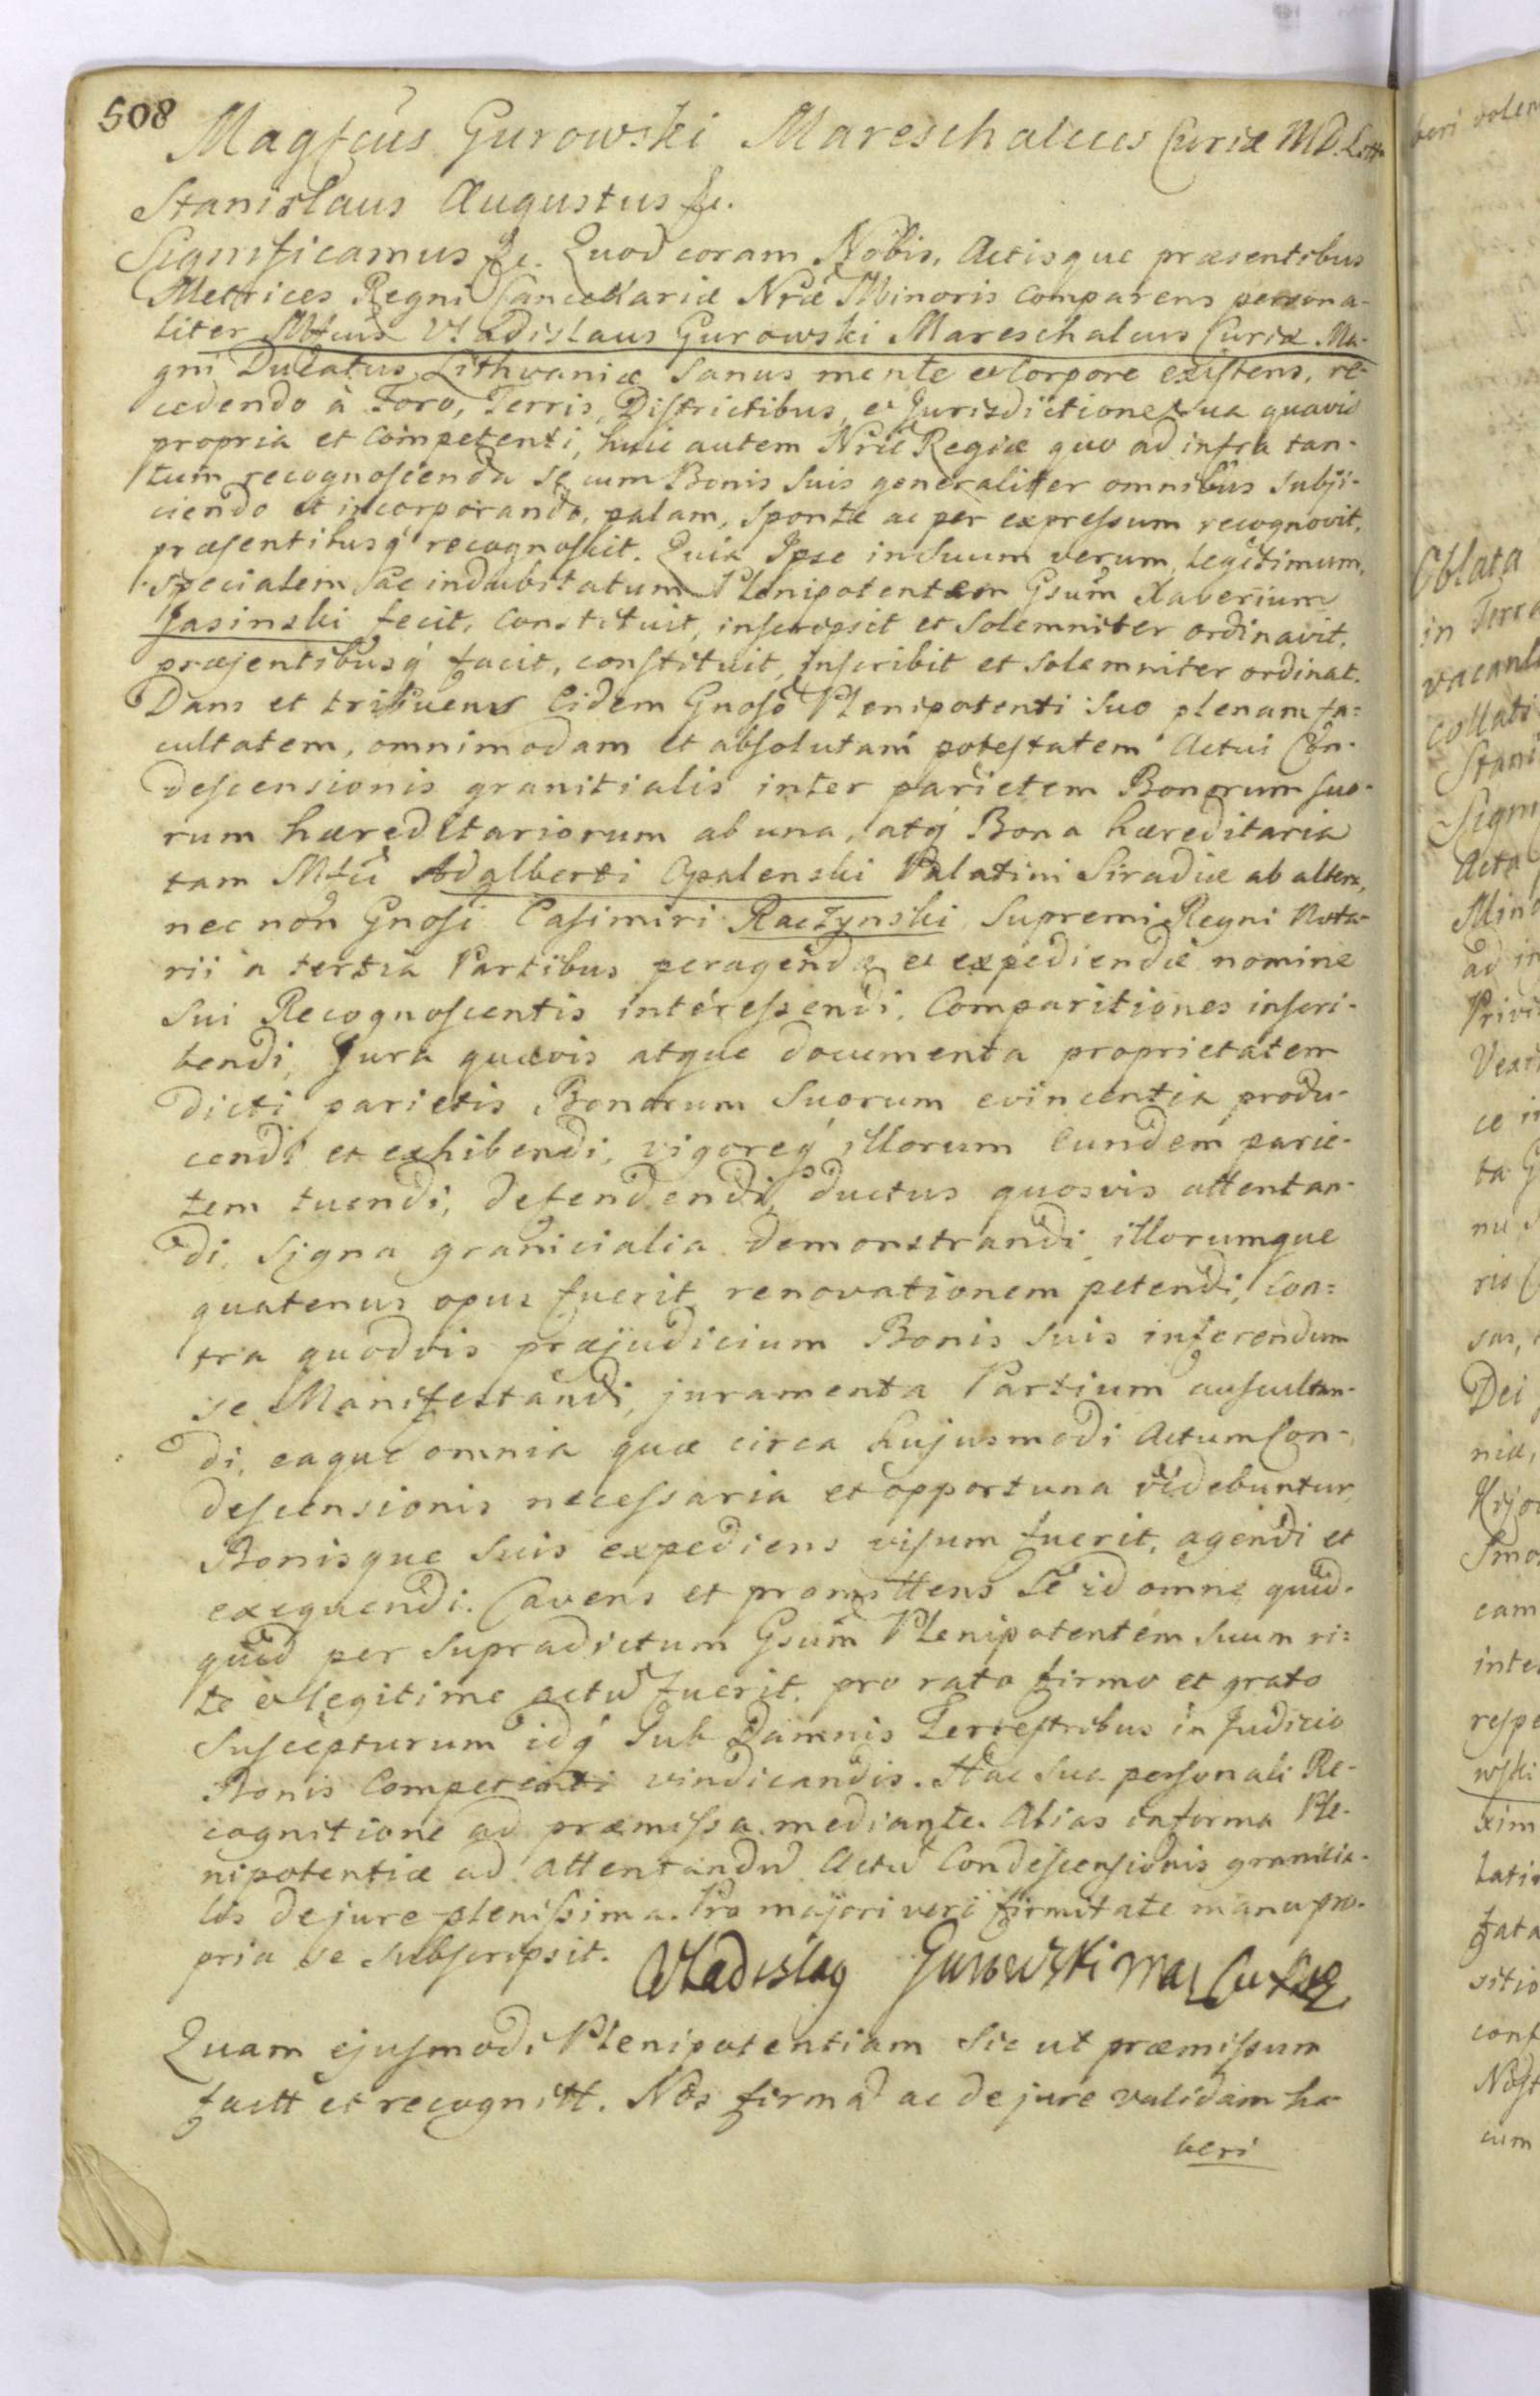 508
Magfcus Gurowski Mareschalcus Curiæ M.D.Litt
Stanislaus Augustus &c.
Significamus &c. Quod coram Nobis, Actisque præsentibus
Metrices Regni Cancellariæ Nræ Minoris comparens persona-
liter Mfcus Vladislaus Gurowski Mareschalcus Curiæ Ma-
gni Ducatus Lithvaniæ Sanus mente et Corpore existens, re-
cedendo à Foro, Terris, Districtibus, et Jurisdictione sua quavis
propria et competenti, huic autem Nræ Regiæ quo ad infra tan-
tum recognoscenda se cum Bonis suis generaliter omnibus subji-
ciendo et incorporando, palam, sponte ac per expressum recognovit,
præsentibusq́ recognoscit. Quia Ipse in suum verum, legitimum,
specialem ac indubitatum Plenipotentem Gsum Xaverium
Jasinski fecit, constituit, inscripsit et solemniter ordinavit,
præsentibusq́ facit, constituit, inscribit et solemniter ordinat.
Dans et tribuens Eidem Gnoso Plenipotenti suo plenam fa=
cultatem, omnimodam et absolutam potestatem Actui Con-
descensionis granitialis inter parietem Bonorum suo-
rum hæreditariorum ab una, atq́ Bona hæreditaria
tam Mfci Adalberti Opalenski Palatini Siradiæ ab altera,
nec non Gnosi Casimiri Raczynski Supremi Regni Nota-
rii a tertia Partibus peragendæ et expediendæ nomine
sui Recognoscentis interessendi, Comparitiones inscri-
bendi, Jura quævis atque documenta proprietatem
dicti parietis Bonorum Suorum evincentia produ-
cendi et exhibendi, vigoreq́ illorum eundem parie-
tem tuendi, defendendi, ductus quosvis attentan-
di, signa granicialia demonstrandi, illorumque
quatenus opus fuerit renovationem petendi, con=
tra quodvis præjudicium Bonis suis inferendum
se Manifestandi, juramenta Partium auscultan-
di, eaque omnia quæ circa hujusmodi Actum Con-
descensionis necessaria et opportuna videbuntur,
Bonisque suis expediens visum fuerit, agendi et
exequendi. Cavens et promittens Se id omne quid-
quid per supradictum Gsum Plenipotentem suum ri=
te et legitime actu fuerit, pro rato firmo et grato
suscepturum idq́ sub Damnis Terrestribus in Judicio
Bonis Competenti vindicandis. Hac sua personali Re-
cognitione ad præmissa mediante. Alias in forma Ple-
nipotentiæ ad attentandu Actu Condescensionis granicia-
lis de jure plenissima. Pro majori veri firmitate manu pro-
pria se subscripsit. Vladislag Gurowski Mar
Quam ejusmodi Plenipotentiam sic ut præmissum
factt et recognitt. Nos firma ac de jure validam ha-
beri
beri volen
Oblata
in Terra
vacant
collati
Stani
Signi
Acta
Mino
ad in
Privi
Vest
ce i
ta G
nu
ris
sas,
Dei
niæ,
Kijo
Smo
cam
inte
respe
wski
xim
latio
tata
sitio
conf
Nost
cum